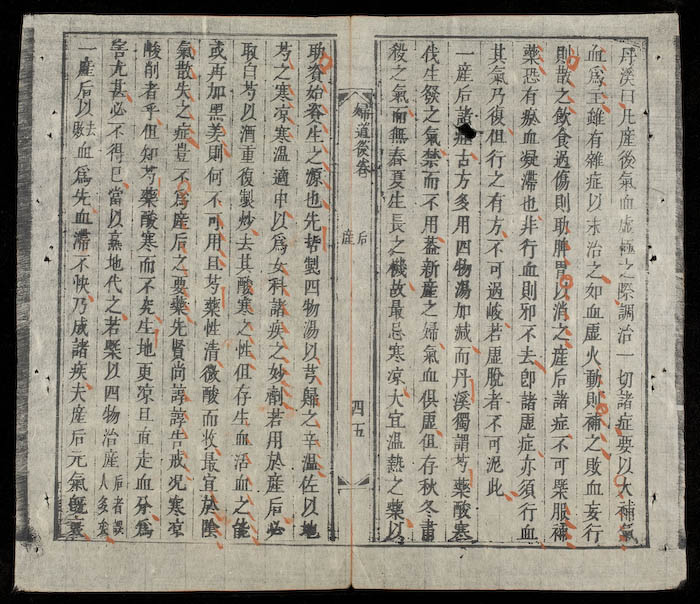 丹溪曰凡産後氣血虛極之際調治一切諸症要以大補氣
血爲主雖有雜症以末治之如血虛火動則補之敗血妄行
則散之飲食過傷則助脾胃以消之産后諸症不可槩服補
藥恐有瘀血凝滯也非行血則邪不去卽諸虛症亦須行血
其氣乃復但行之有方不可過峻若虛脫者不可泥此
一産后諸症古方多用四物湯加減而丹溪獨謂芍藥酸寒
伐生發之氣禁而不用葢新産之婦氣血俱虛但存秋冬肅
殺之氣而無春夏生長之機故最忌寒凉大宜温熱之藥以
婦道後卷
産后
四五
助資始資生之源也先哲製四物湯以芎歸之辛温佐以地
芍之寒凉寒温適中以爲女科諸疾之妙劑若用於産后必
取白芍以酒重復製炒去其酸寒之性但存生血活血之能
或再加黑姜則何不可用且芍藥性清微酸而收最宜於陰
氣散失之症豈不爲産后之要藥先賢尚諄諄告戒况寒凉
酸削者乎但知芍藥酸寒而不究生地更凉且直走血分爲
害尤甚必不得已當以熟地代之若槩以四物治産后者誤人多矣
一産后以去敗血爲先血滯不快乃成諸疾夫産后元氣旣衰